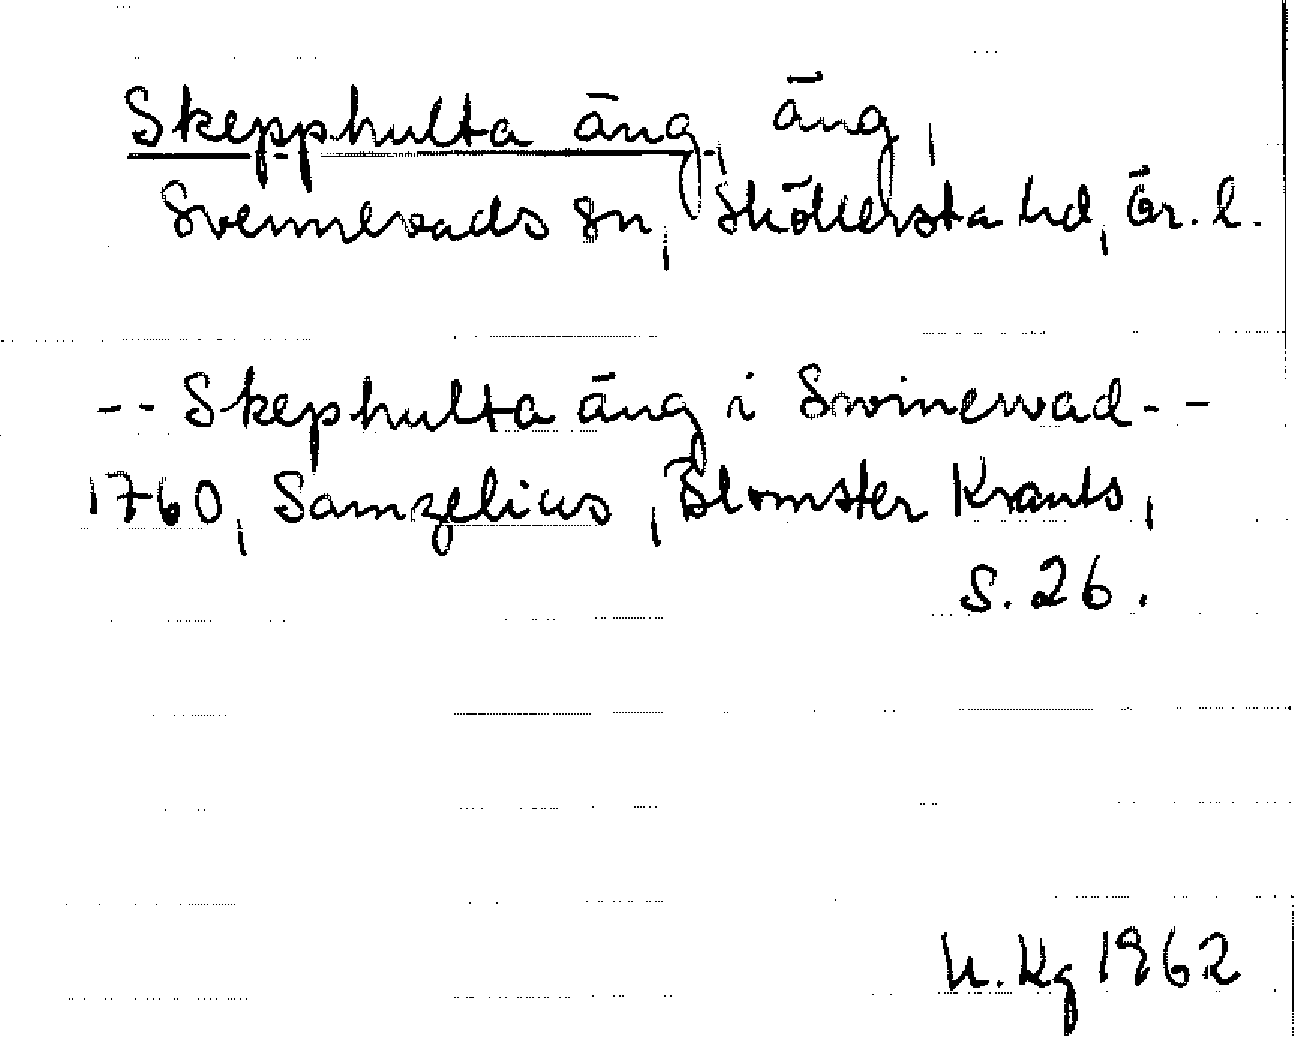 Skepphulta äng, äng,
Svennevads sn, Sköllersta hd, Ör. l.
-- Skephulta äng i Swinewad --
1760, Samzelius, Blomster Krants,
s. 26.
K. Kg 1962